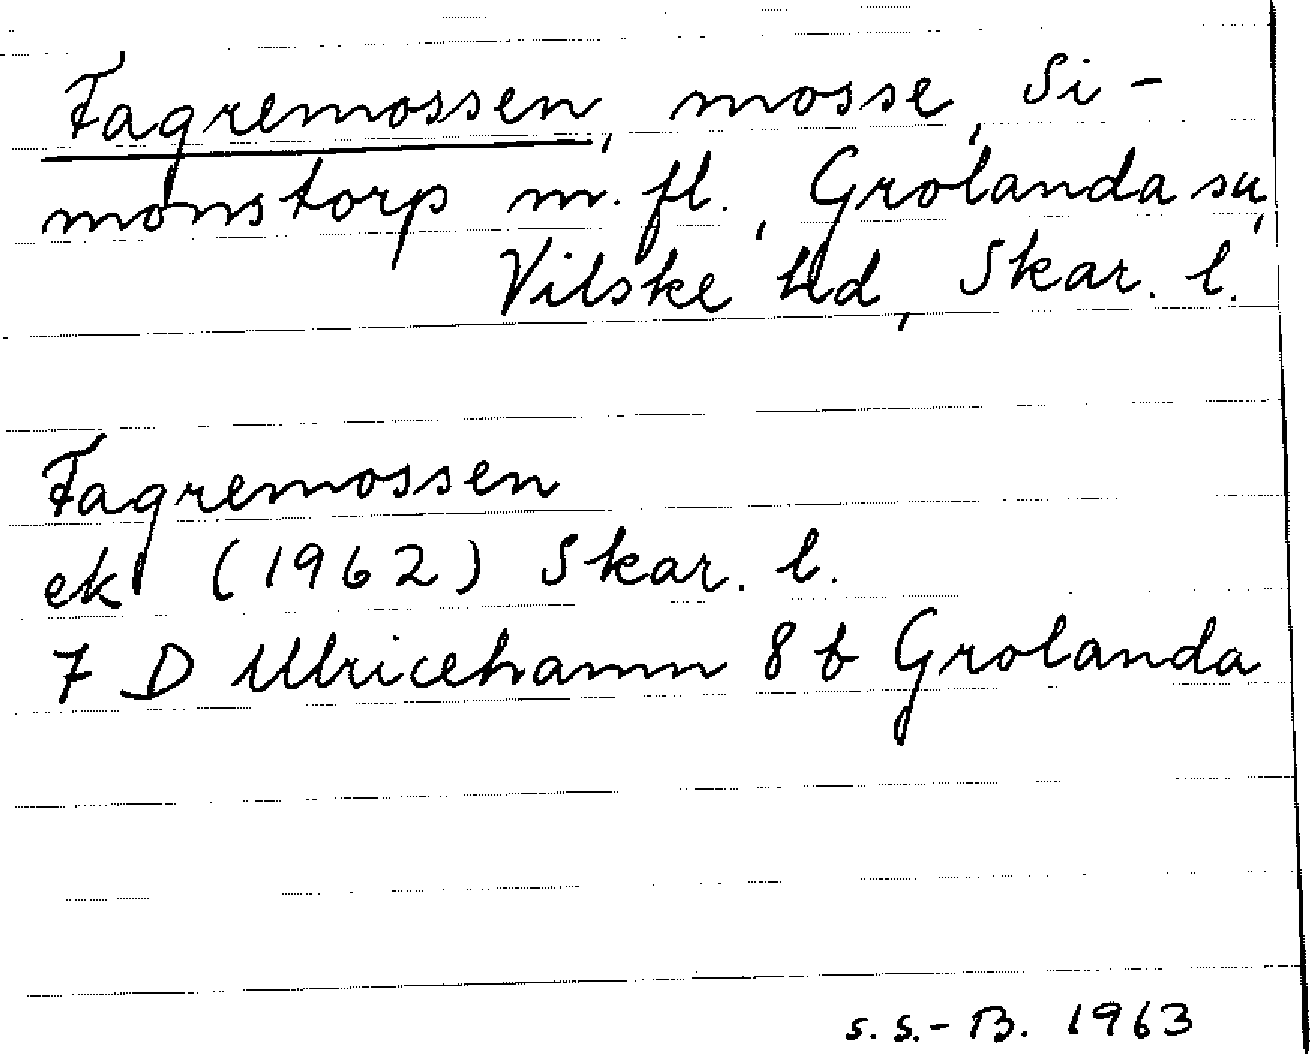 Fagremossen, mosse, Si-
monstorp m. fl., Grolanda sn,
Vilske hd, Skar. l.
Fagremossen
ek (1962) Skar. l.
7 D Ulricehamn 8 b Grolanda
S.S.-B. 1963